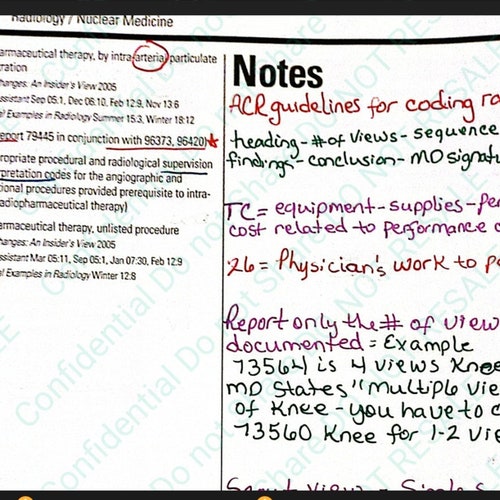 Radiology / Nuclear Medicine
armaceutical therapy, by intra-arterial particulate
ration
hanges: An Insider's View 2005
ssistant Sep 05:1, Dec 06:10, Feb 12:9, Nov 13:6
al Examples in Radiology Summer 15:3, Winter 18:12
eport 79445 in conjunction with 96373, 96420)★
ropriate procedural and radiological supervision
rpretation codes for the angiographic and
tional procedures provided prerequisite to intra-
adiopharmaceutical therapy)
armaceutical therapy, unlisted procedure
hanges: An Insider's View 2005
ssistant Mar 05:11, Sep 05:1, Jan 07:30, Feb 12:9
al Examples in Radiology Winter 12:8
Notes
ACR guidelines for coding ra
heading - # of views - sequence
findings - conclusion - MD signat
TC = equipment - supplies - per
cost related to performance o
26 = Physician's work to p
Report only the # of view
documented = Example
73564 is 4 views Knee
MD States "multiple vie
of Knee - you have to c
73560 Knee for 1-2 vie
Confidential Do not Share
DO NOT RESALE